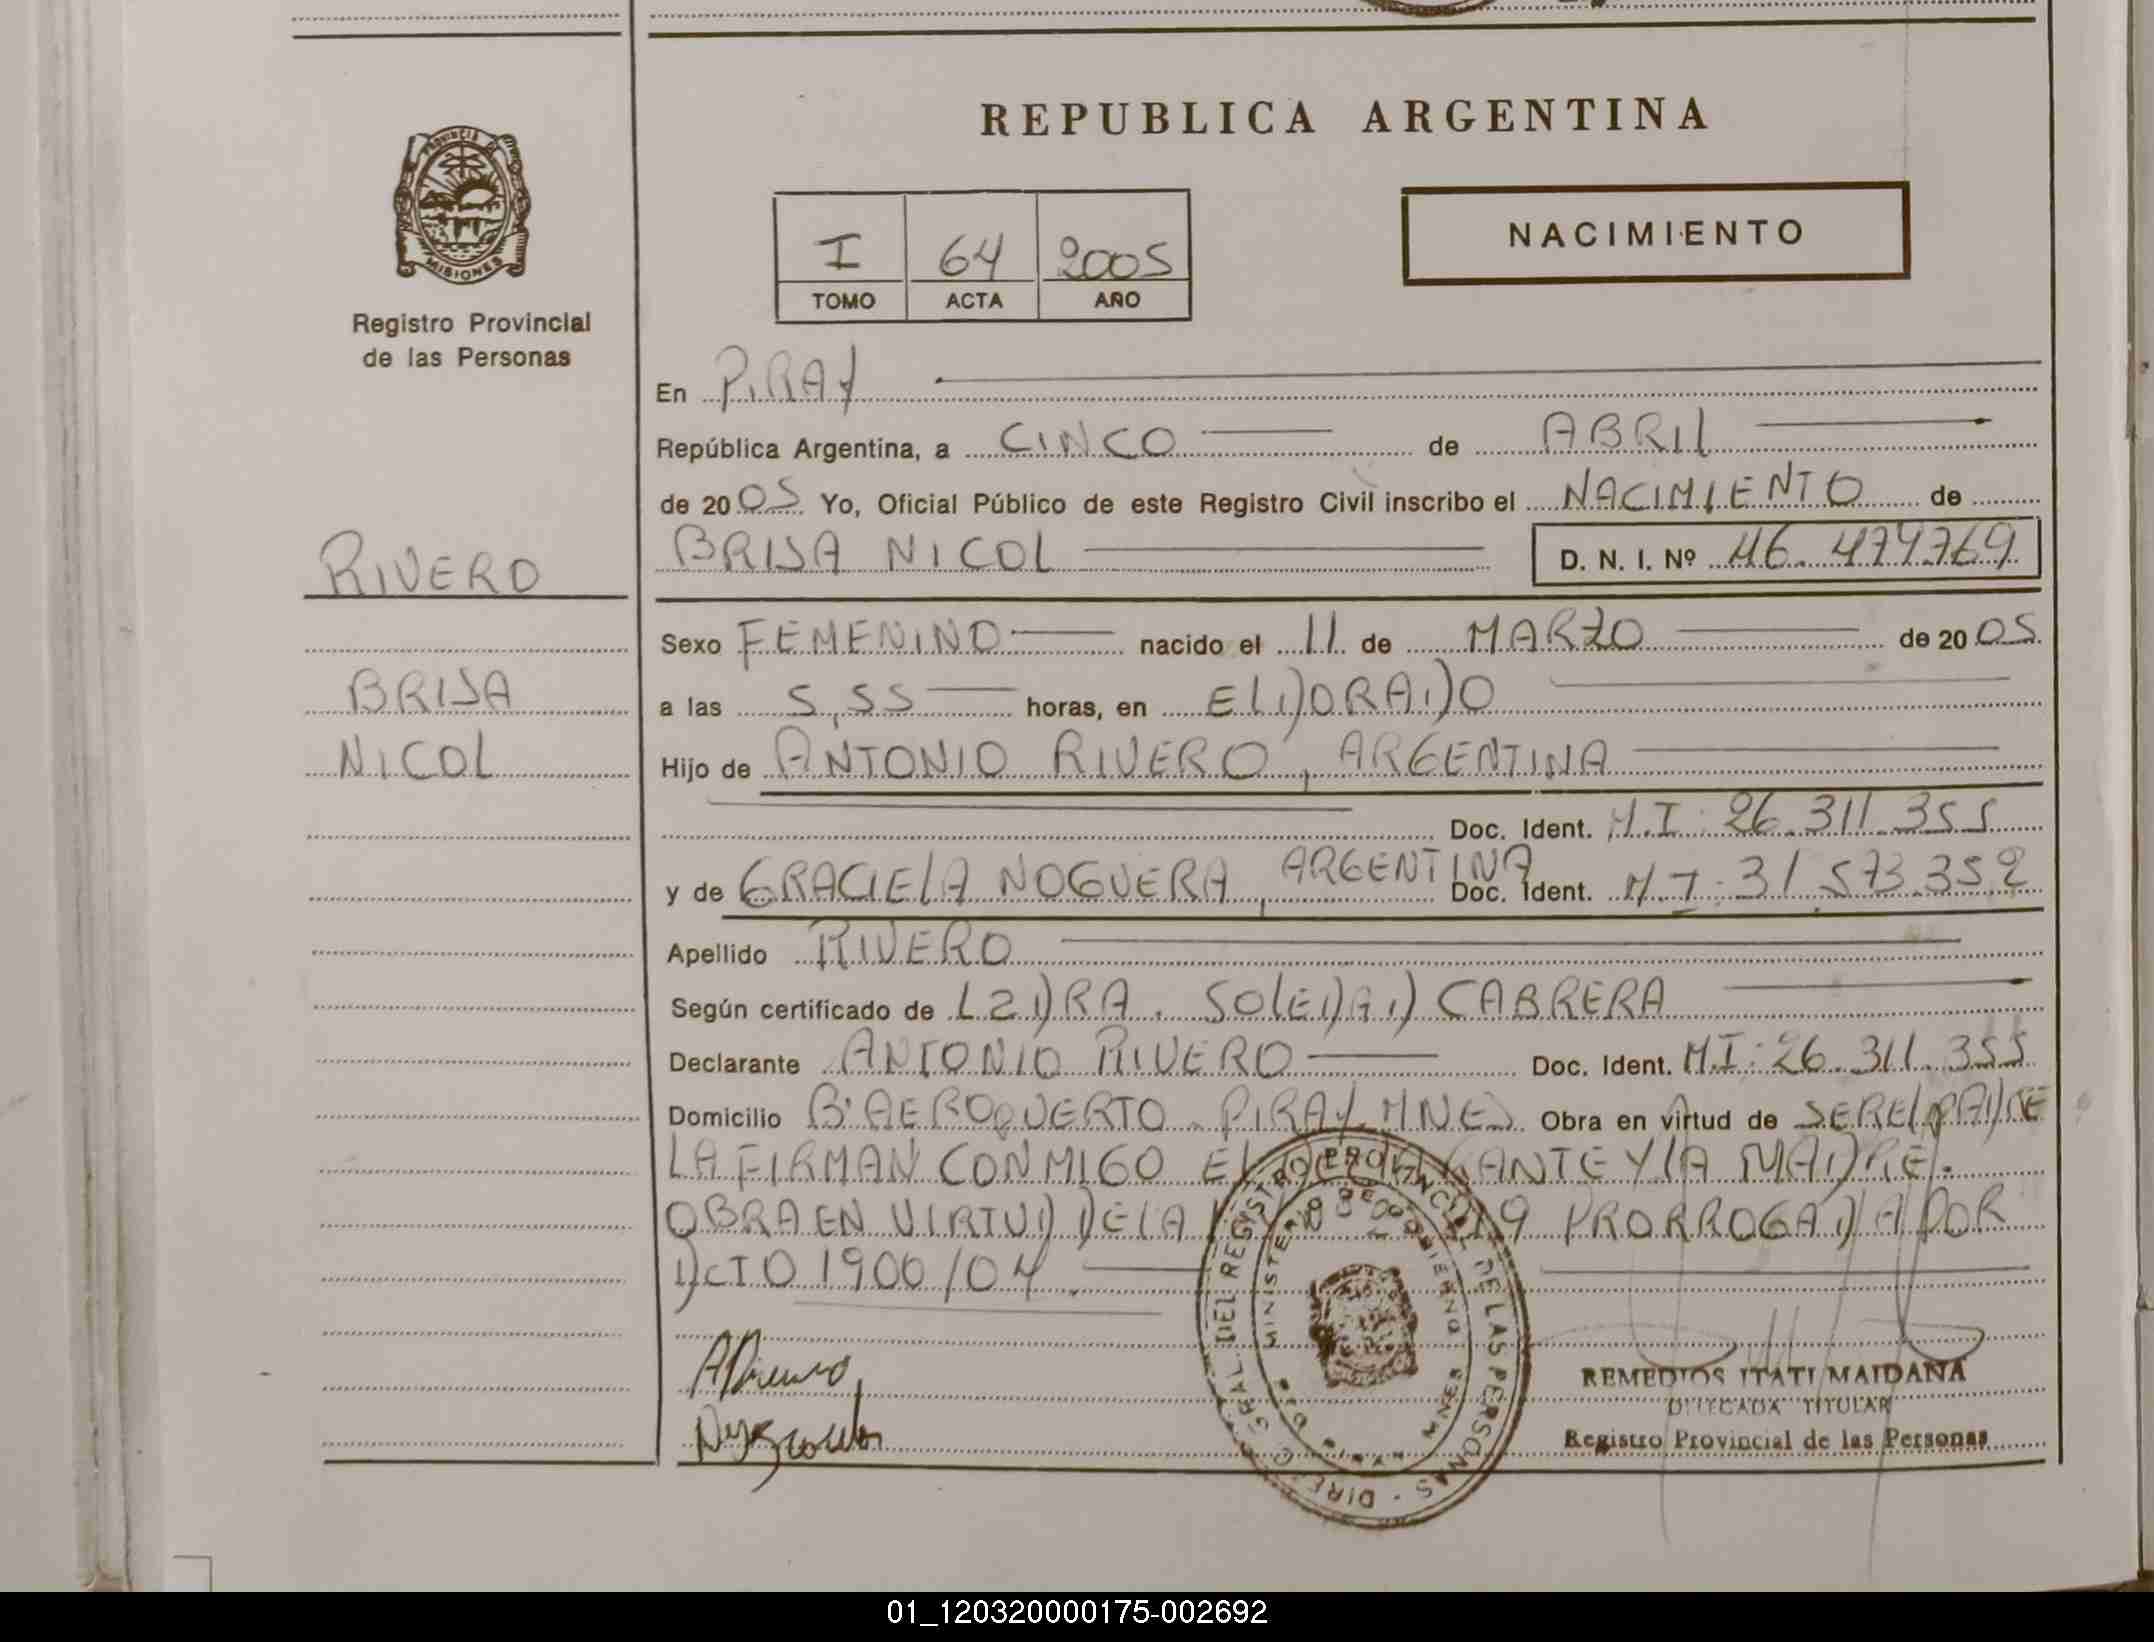 REPUBLICA ARGENTINA
PROVINCIA DE MISIONES
Registro Provincial
de las Personas
I 64 2005
TOMO ACTA AÑO
NACIMIENTO
En PIRAY
República Argentina, a CINCO de ABRIL
de 2005 Yo, Oficial Público de este Registro Civil inscribo el NACIMIENTO de
RIVERO
BRISA NICOL D. N. I. Nº 46.474769
Sexo FEMENINO nacido el 11 de MARZO de 2005
BRISA
a las 5,55 horas, en ELDORADO
NICOL
Hijo de ANTONIO RIVERO, ARGENTINA
Doc. Ident. M.I: 26.311.355
y de GRACIELA NOGUERA, ARGENTINA Doc. Ident. M.I: 31.573.352
Apellido RIVERO
Según certificado de DRA. SOLEDAD CABRERA
Declarante ANTONIO RIVERO Doc. Ident. M.I: 26.311.355
Domicilio Bº AEROPUERTO. PIRAY MNES Obra en virtud de SER EL PADRE
LA FIRMAN CONMIGO EL Y LA MADRE.
OBRA EN VIRTUD DE LA 19 PRORROGADA POR
DCTO 1900/04.
DIREC. GRAL. DEL REGISTRO PROVINCIAL DE LAS PERSONAS
MINISTERIO DE GOBIERNO MNES
REMEDIOS ITATI MAIDANA
DELEGADA TITULAR
Registro Provincial de las Personas
01_120320000175-002692